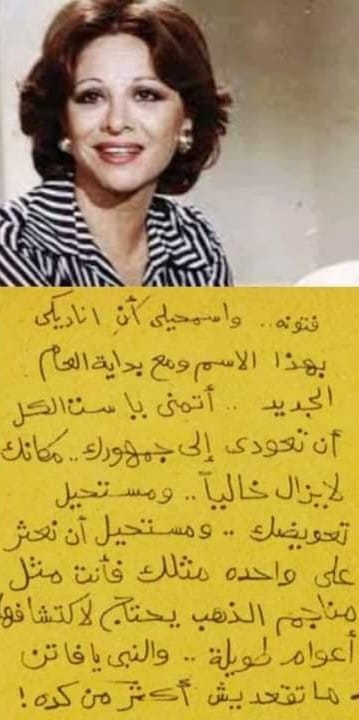 فتونه.. واسمحيلى أن اناديكى
بهذا الاسم ومع بداية العام
الجديد .. أتمنى يا ست الكل
أن تعودى إلى جمهورك.. مكانك
لا يزال خالياً .. ومستحيل
تعويضك .. ومستحيل أن نعثر
على واحده مثلك فأنت مثل
مناجم الذهب يحتاج لاكتشافها
أعوام طويلة .. والنبى يا فاتن
ما تقعديش أكثر من كده!